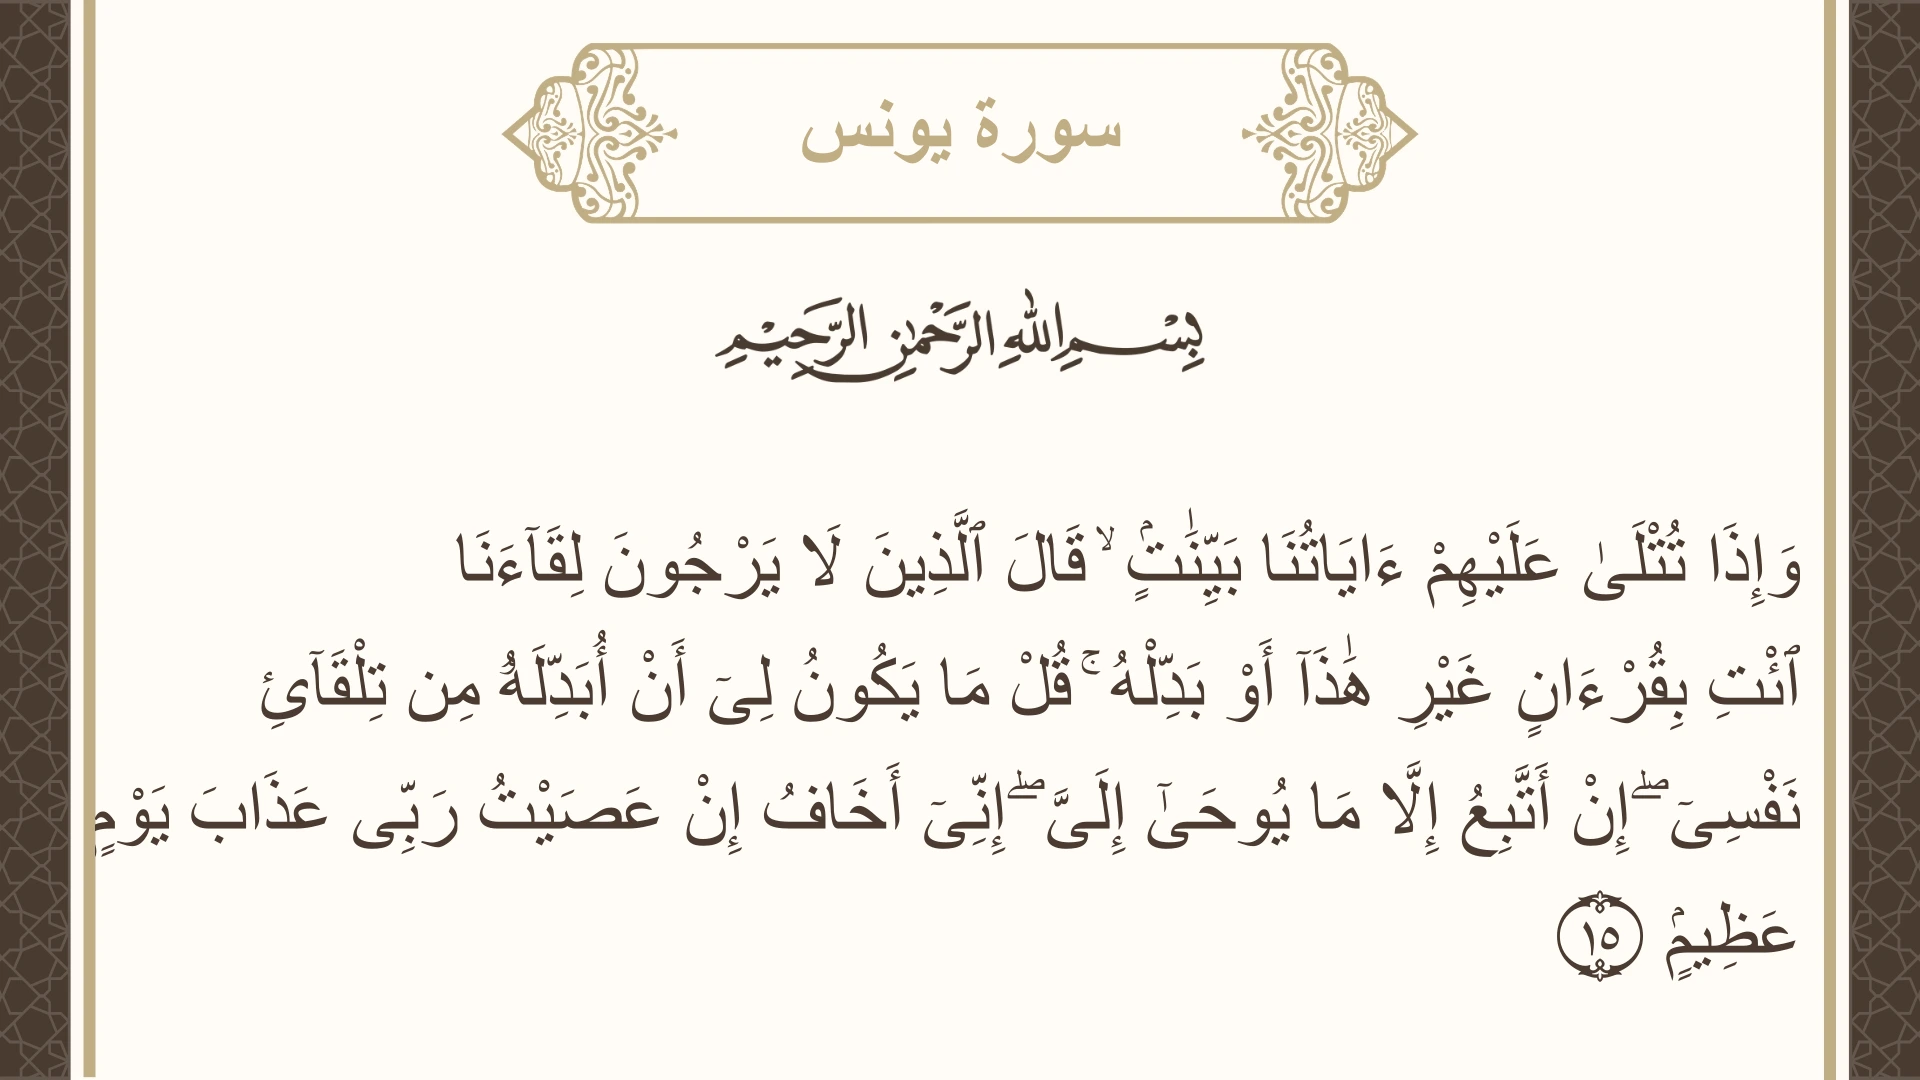 سورة يونس
بِسْمِ اللهِ الرَّحْمٰنِ الرَّحِيْمِ
وَإِذَا تُتْلَىٰ عَلَيْهِمْ ءَايَاتُنَا بَيِّنَٰتٍۢ ۙ قَالَ ٱلَّذِينَ لَا يَرْجُونَ لِقَآءَنَا
ٱئْتِ بِقُرْءَانٍ غَيْرِ هَٰذَآ أَوْ بَدِّلْهُ ۚ قُلْ مَا يَكُونُ لِىٓ أَنْ أُبَدِّلَهُۥ مِن تِلْقَآئِ
نَفْسِىٓ ۖ إِنْ أَتَّبِعُ إِلَّا مَا يُوحَىٰٓ إِلَىَّ ۖ إِنِّىٓ أَخَافُ إِنْ عَصَيْتُ رَبِّى عَذَابَ يَوْمٍ
عَظِيمٍۢ ١٥